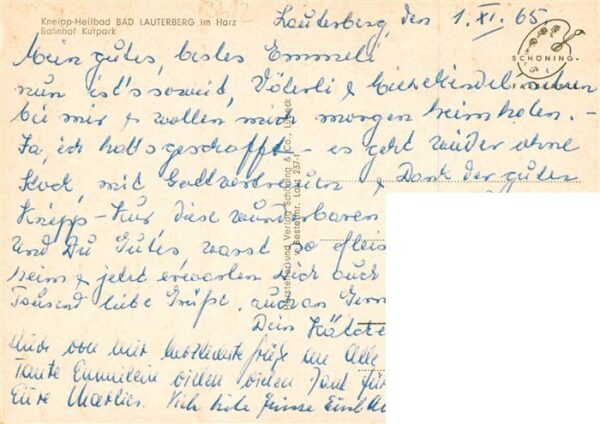 Kneipp-Heilbad BAD LAUTERBERG im Harz
Bahnhof Kurpark
Lauterberg, den 1. XI. 65
SCHÖNING
Mein gutes, bestes Emmeli
nun ist's soweit, Väterli &
bei mir & wollen mich morgen heimholen. -
Ja, ich hab's geschafft - es geht wieder ohne
Stock, mit Gottvertrauen & Dank der guten
Kneipp-Kur, diese wunderbaren
und Du Gutes, warst so fleis
heim & jetzt erwarten Dich auch
Tausend liebe Grüße, auch an
Dein
Auch von mir Grüße an Alle
Tante Emmilein vielen vielen Dank für
Eure Marlies.
Hersteller und Verlag Schöning & Co., Lübeck
Bestellnr. Lau 237-T